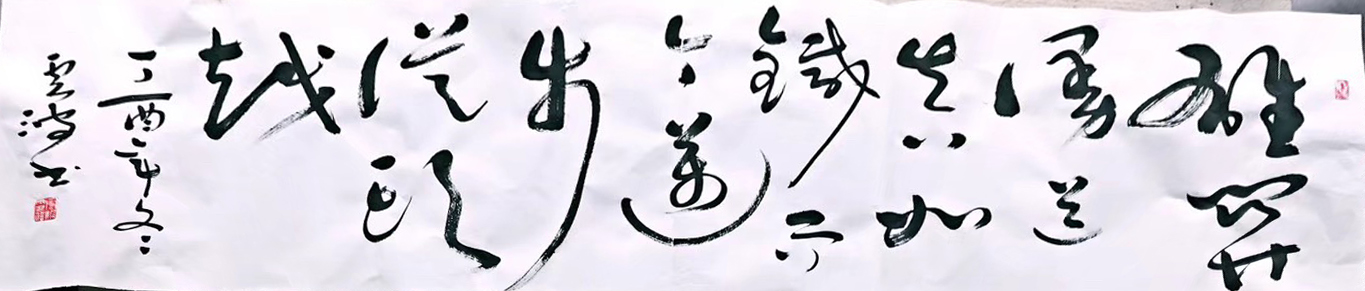 雄關
漫道
真如
鐵而
今邁
步
從頭
越
丁酉年冬
雲鴻書